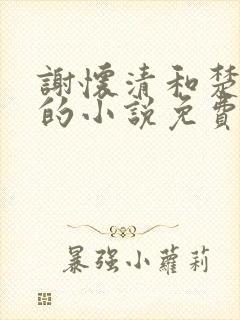 謝懷清和楚
的小說免費
暴强小蘿莉